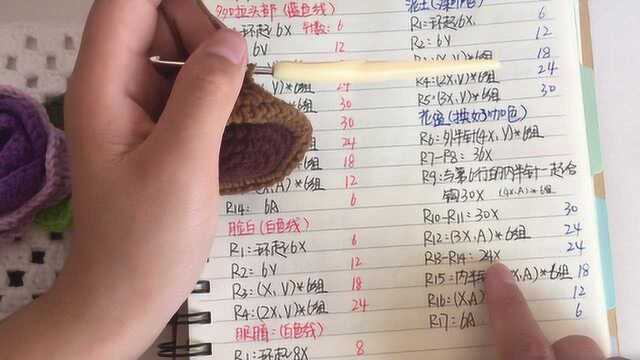 头部(蓝色线) 针数: 6
环起6X
6V 12
V)*6组 24
30
30
组 24
*6组 18
(X,A)*6组 12
R14: 6A 6
脸白(白色线)
R1:环起6X 6
R2: 6V 12
R3:(X,V)*6组 18
R4:(2X,V)*6组 24
眼睛:(白色线)
R1:环起8X 8
R1:环起6X. 6
R2: 6V 12
*6组 18
R4:(2X,V)*6组 24
R5:(3X,V)*6组 30
花盆(换如30#色)
R6:外半针(4X,V)*6组
R7-R8: 36X
R9:与第6行的内半针一起合
钩30X (4X,A)*6组
R10-R11:30X 30
R12:(3X,A)*6组 24
R13-R14: 24X 24
R15:内半针 X,A)*6组 18
R16:(X,A) 12
R17: 6A 6